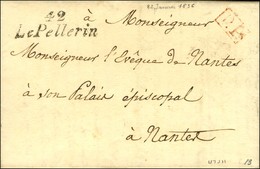 42
Le Pellerin
à Monseigneur
Monseigneur l'Evêque de Nantes
à son Palais épiscopal
à Nantes